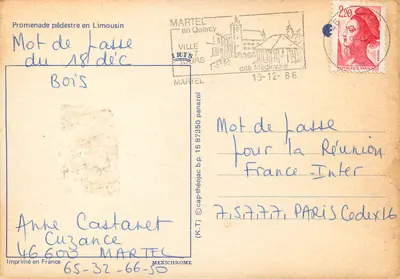 Promenade pédestre en Limousin
Mot de Passe
du 18 déc
Bois
Anne Castanet
Cuzance
46600 MARTEL
65-32-66-50
Imprimé en France
MEXICHROME
IRIS
(K.T) © cap-théojac b.p. 15 87350 panazol
MARTEL
en Quercy
VILLE
TOURS
cité Médiévale
19-12-86
MARTEL
2,20
Mot de Passe
pour la Réunion
France-Inter
7.5.7.7.7. PARIS Cedex 16